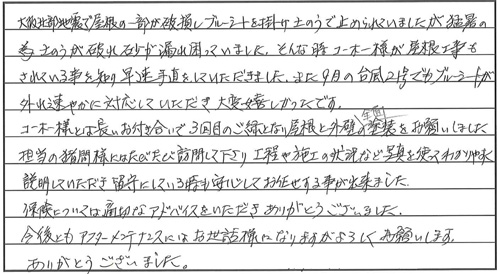 大阪北部地震で屋根の一部が破損しブルーシートを掛け土のうで止められていましたが猛暑の
為土のうが破れ砂が漏れ困っていました。そんな時コーホー様が屋根工事も
されている事を知り早速手直をしていただきました。また9月の台風21号でもブルーシートが
外れ速やかに対応していただき大変嬉しかったです。
コーホー様とは長いお付き合いで3回目のご縁となり屋根と外壁の全面塗装をお願いしました
担当の猪間様にはたびたび訪問して下さり工程や施工の状況など写真を使ってわかりやすく
説明していただき留守にしている時も安心してお任せする事が出来ました。
保険については適切なアドバイスをいただきありがとうございました。
今後ともアフターメンテナンスにはお世話様になりますがよろしくお願いします。
ありがとうございました。